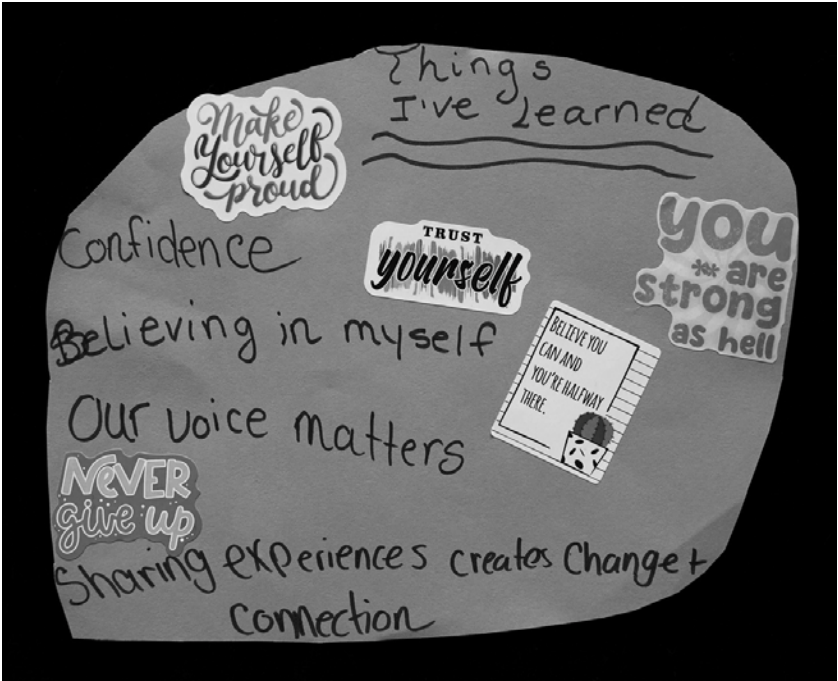 Things
I've Learned
Make
Yourself
proud
Confidence
TRUST
yourself
you
are
strong
as hell
Believing in myself
BELIEVE YOU
CAN AND
YOU'RE HALFWAY
THERE.
Our voice matters
NEVER
give up
Sharing experiences creates Change +
Connection